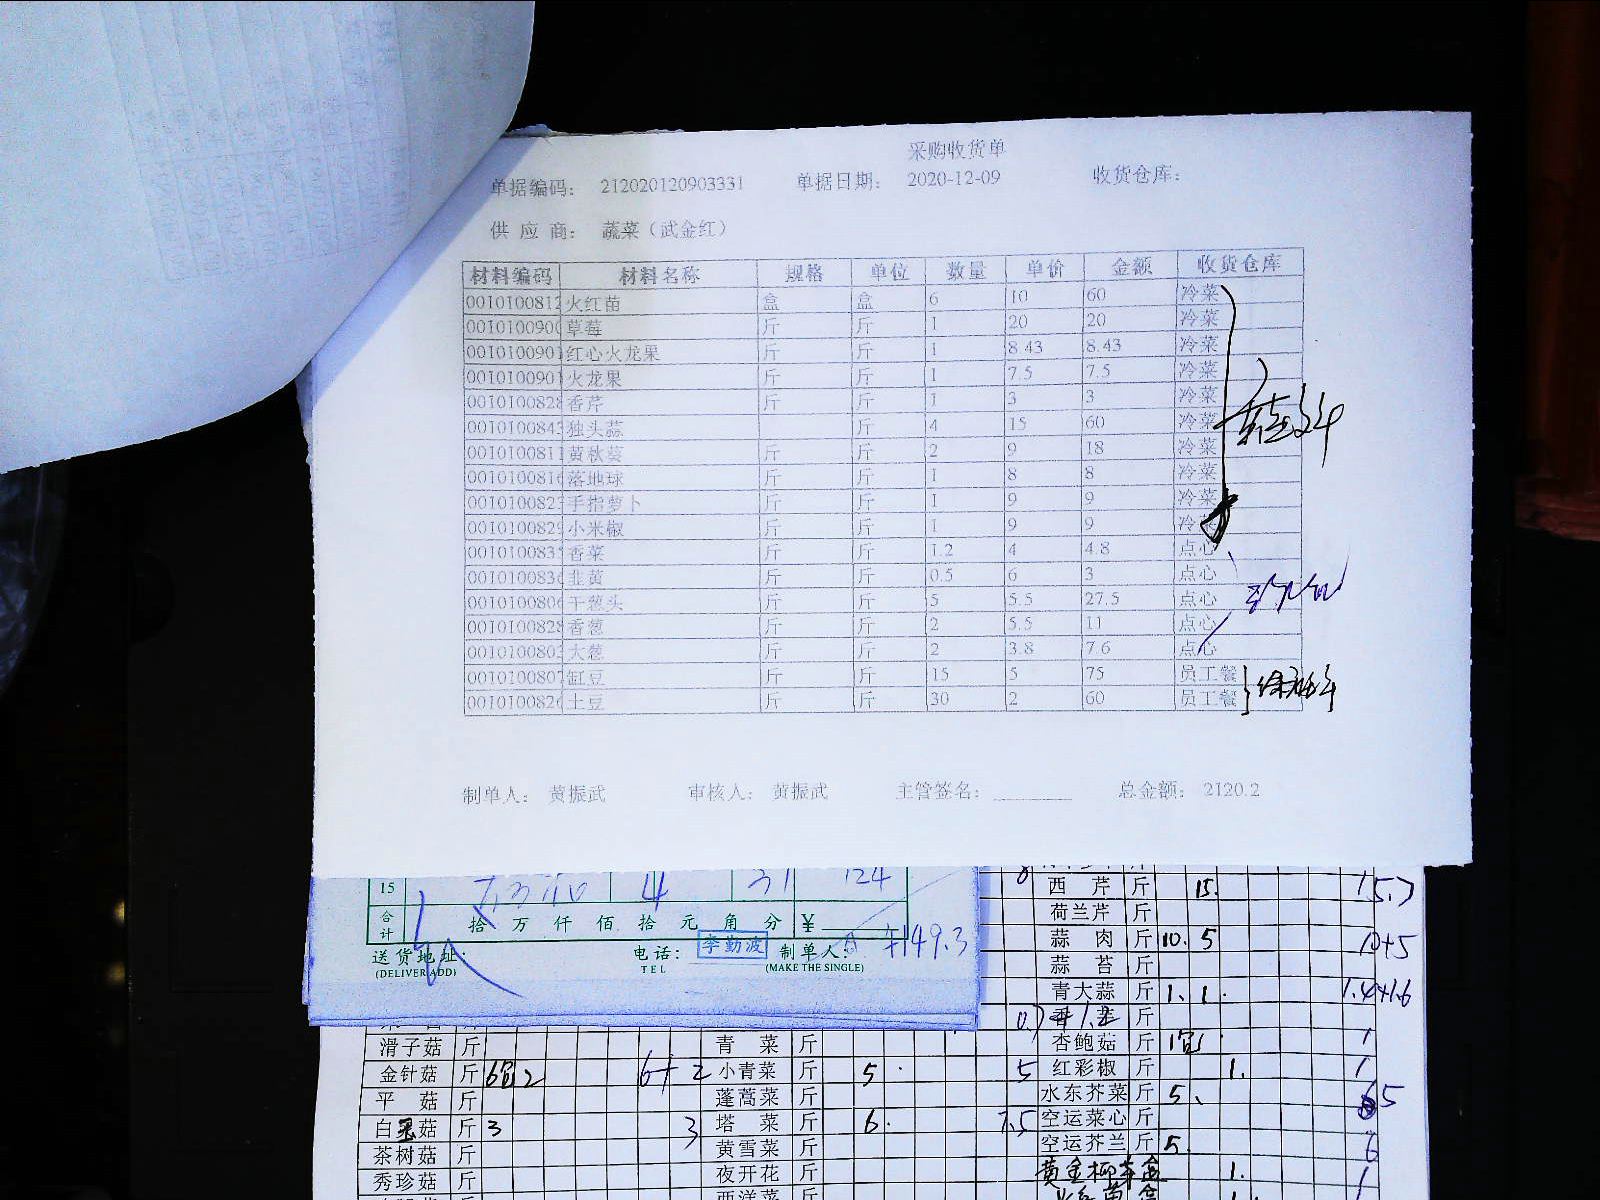 采购收货单
单据编码： 212020120903331 单据日期： 2020-12-09 收货仓库：
供 应 商： 蔬菜（武金红）
材料编码 材料名称 规格 单位 数量 单价 金额 收货仓库
0010100812 火红苗 盒 盒 6 10 60 冷菜
001010090 草莓 斤 斤 1 20 20 冷菜
001010090 红心火龙果 斤 斤 1 8.43 8.43 冷菜
001010090 火龙果 斤 斤 1 7.5 7.5 冷菜
001010082 香芹 斤 斤 1 3 3 冷菜
001010084 独头蒜 斤 4 15 60 冷菜
001010081 黄秋葵 斤 斤 2 9 18 冷菜
001010081 落地球 斤 斤 1 8 8 冷菜
001010082 手指萝卜 斤 斤 1 9 9 冷菜
001010082 小米椒 斤 斤 1 9 9 冷菜
001010083 香菜 斤 斤 1.2 4 4.8 点心
001010083 韭黄 斤 斤 0.5 6 3 点心
001010080 干葱头 斤 斤 5 5.5 27.5 点心
001010082 香葱 斤 斤 2 5.5 11 点心
001010080 大葱 斤 斤 2 3.8 7.6 点心
001010080 缸豆 斤 斤 15 5 75 员工餐
001010082 土豆 斤 斤 30 2 60 员工餐
制单人： 黄振武 审核人： 黄振武 主管签名： 总金额： 2120.2
15 4 31 124
合计 拾 万 仟 佰 拾 元 角 分 ¥
149.3
送货地址： 电话： 李勤波 制单人：
(DELIVER ADD) TEL (MAKE THE SINGLE)
西 芹 斤 15. 15.7
荷兰芹 斤
蒜 肉 斤 10. 5 10+5
蒜 苔 斤
青大蒜 斤 1. 1. 1.4+1.6
斤
滑子菇 斤 青 菜 斤 杏鲍菇 斤 1
金针菇 斤 6 2 6+2 小青菜 斤 5. 5 红彩椒 斤 1. 1
平 菇 斤 蓬蒿菜 斤 水东芥菜 斤 5. 5
白 菇 斤 3 3 塔 菜 斤 6. 7.5 空运菜心 斤
茶树菇 斤 黄雪菜 斤 空运芥兰 斤 5. 6
秀珍菇 斤 夜开花 斤 1. 1
西洋菜 斤